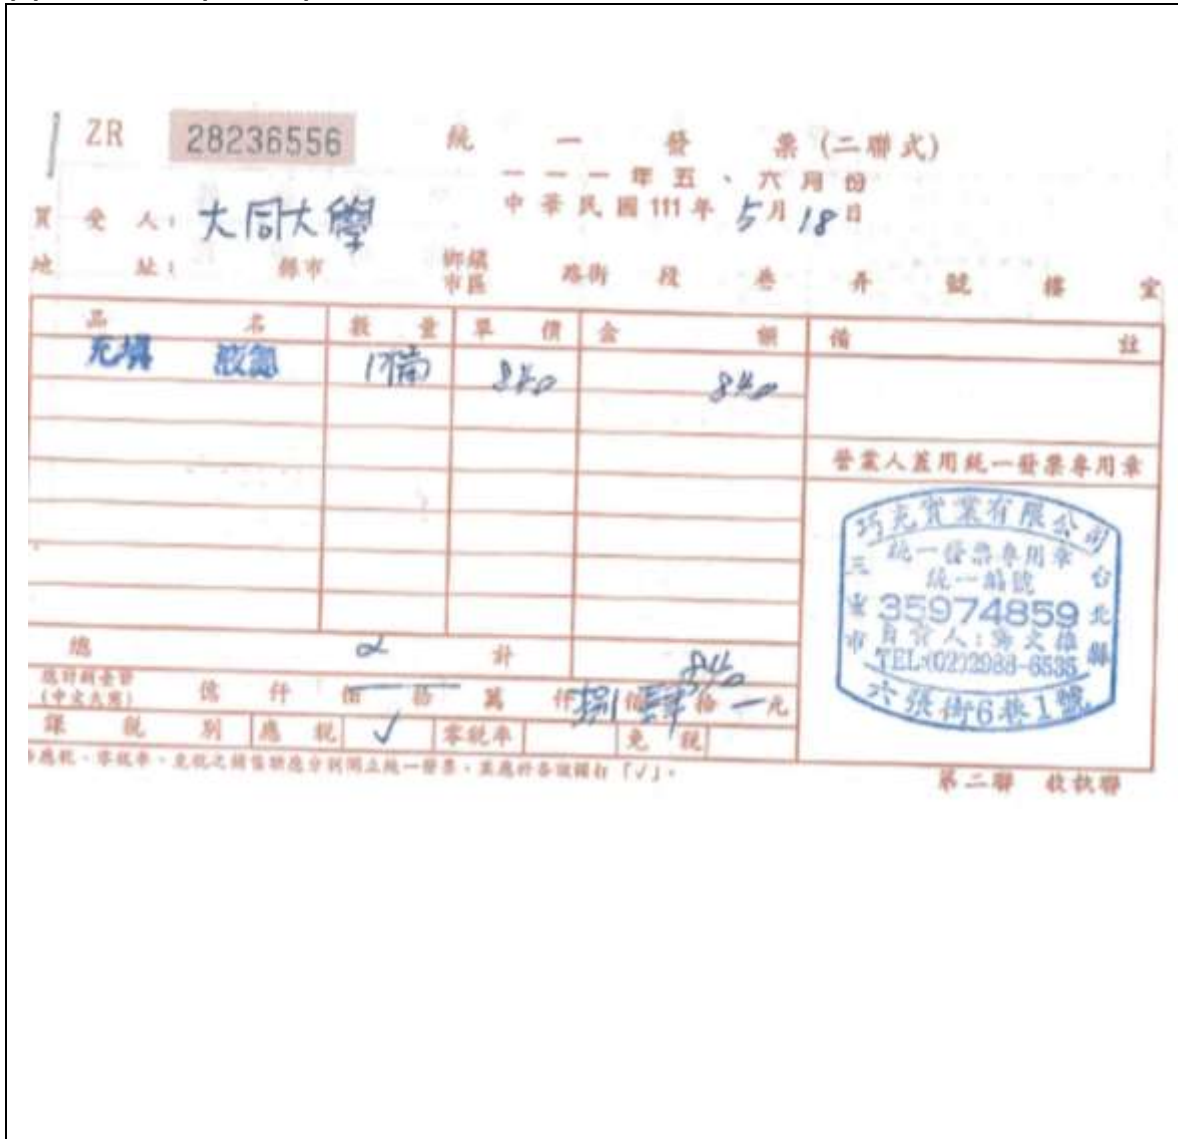 ZR 28236556 統一發票(二聯式)
一一一年五、六月份
中華民國111年5月18日
買受人:大同大學
地址: 縣市 鄉鎮市區 路街 段 巷 弄 號 樓 室
品名 數量 單價 金額 備註
充填 液氮 1桶 840 840
營業人蓋用統一發票專用章
巧克實業有限公司
統一發票專用章
統一編號
35974859
負責人:
TEL:(02)2988-6535
台北縣三重市
六張街6巷1號
總計 840
總計新臺幣(中文大寫) 億 仟 佰 拾 萬 仟 捌佰 肆拾 一元
課稅別 應稅 ✓ 零稅率 免稅
應稅、零稅率、免稅之銷售額應分別開立統一發票,並應於各該欄打「√」。
第二聯 收執聯